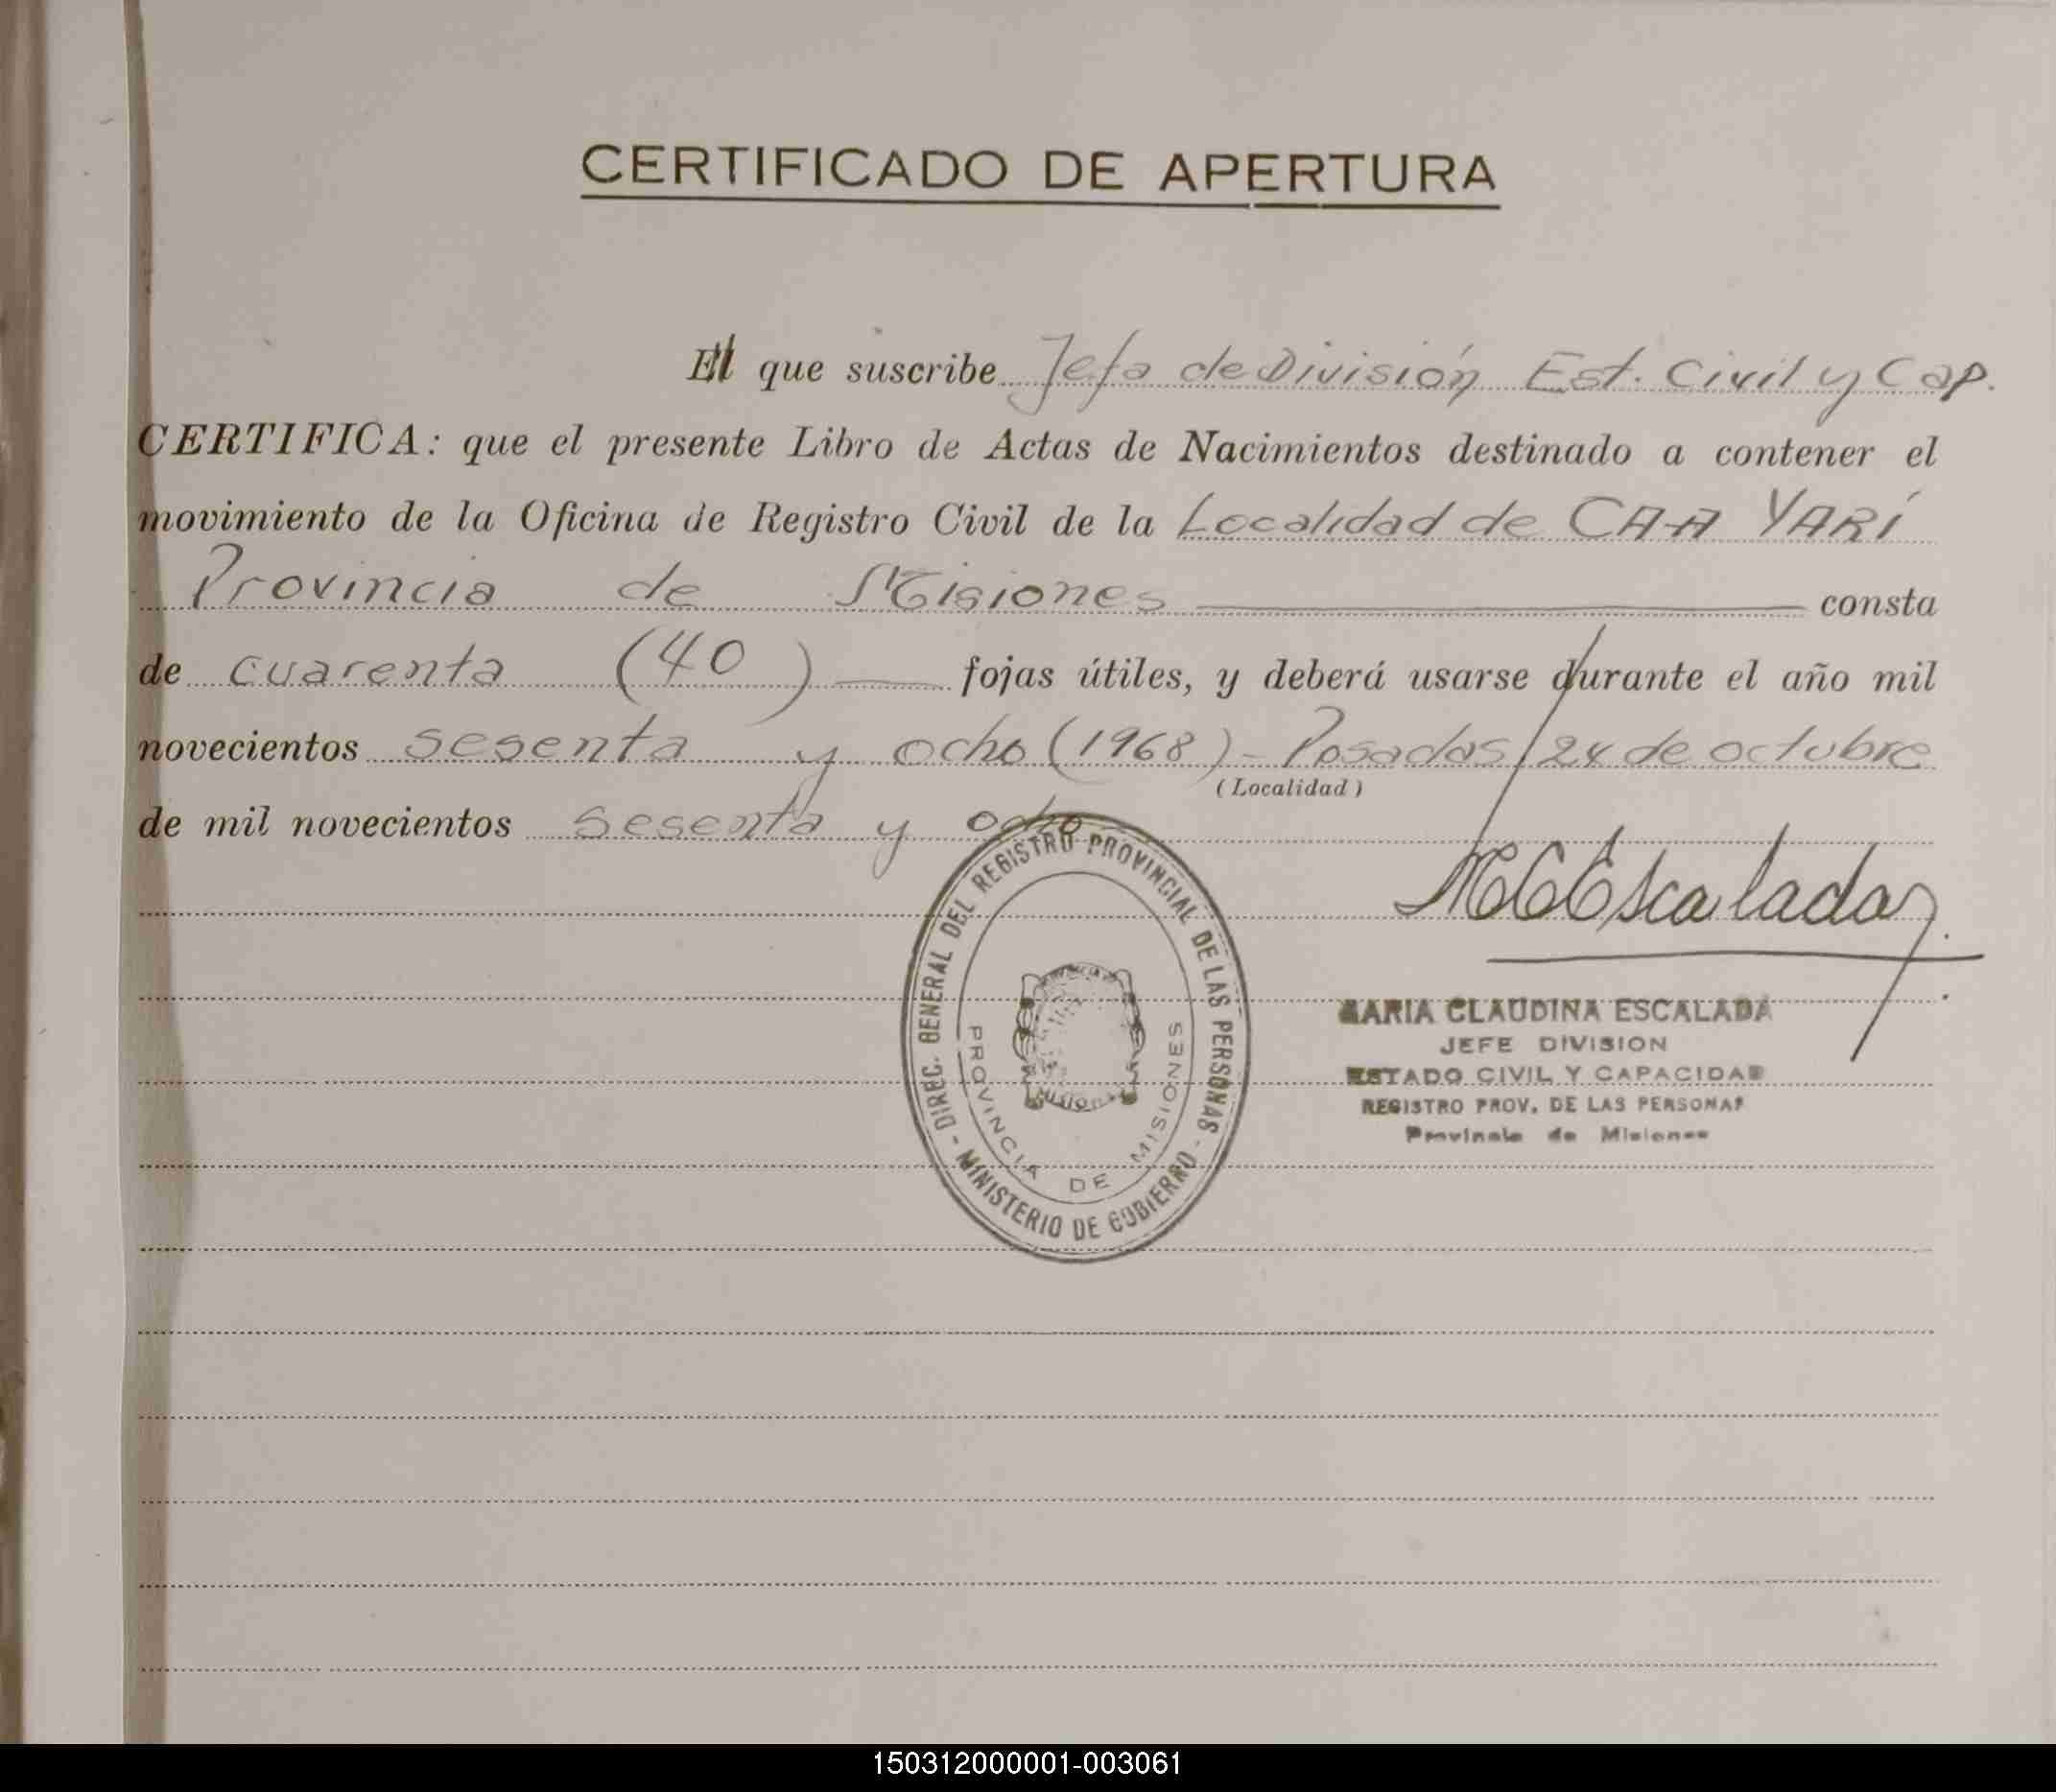 CERTIFICADO DE APERTURA
El que suscribe Jefa de División Est. Civil y Cap.
CERTIFICA: que el presente Libro de Actas de Nacimientos destinado a contener el
movimiento de la Oficina de Registro Civil de la Localidad de CAA YARÍ
Provincia de Misiones consta
de cuarenta (40) fojas útiles, y deberá usarse durante el año mil
novecientos sesenta y ocho (1968) - Posadas, 24 de octubre
(Localidad)
de mil novecientos sesenta y ocho
DIREC. GENERAL DEL REGISTRO PROVINCIAL DE LAS PERSONAS - MINISTERIO DE GOBIERNO -
PROVINCIA DE MISIONES
MCEscalada
MARIA CLAUDINA ESCALADA
JEFE DIVISION
ESTADO CIVIL Y CAPACIDAD
REGISTRO PROV. DE LAS PERSONAS
Provincia de Misiones
150312000001-003061